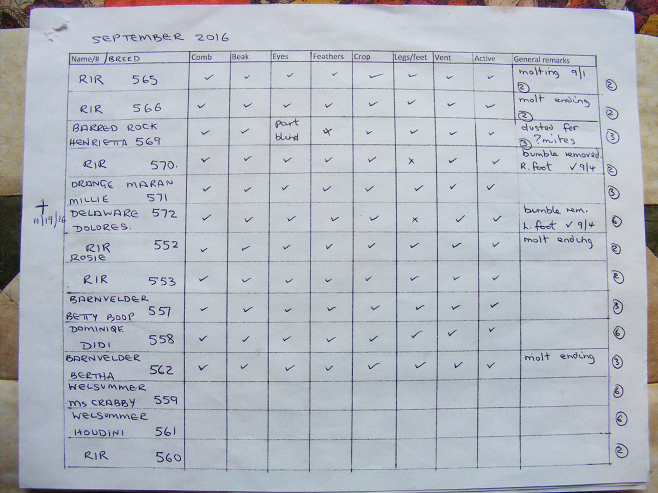 SEPTEMBER 2016
Name/# /BREED Comb Beak Eyes Feathers Crop Legs/feet Vent Active General remarks
RIR 565 ✓ ✓ ✓ ✓ ✓ ✓ ✓ ✓ molting 9/1 ② ②
RIR 566 ✓ ✓ ✓ ✓ ✓ ✓ ✓ ✓ molt ending ② ②
BARRED ROCK
HENRIETTA 569 ✓ ✓ part blind x ✓ ✓ ✓ ✓ dusted for ③ ?mites ③
RIR 570. ✓ ✓ ✓ ✓ ✓ x ✓ ✓ bumble removed. R.foot ✓ 9/4 ②
ORANGE MARAN
MILLIE 571 ✓ ✓ ✓ ✓ ✓ ✓ ✓ ✓ ③
† 11/19/16
DELAWARE 572
DOLORES. ✓ ✓ ✓ ✓ ✓ x ✓ ✓ bumble rem. L.foot ✓ 9/4 ⑥
RIR 552
ROSIE ✓ ✓ ✓ ✓ ✓ ✓ ✓ ✓ molt ending ②
RIR 553 ✓ ✓ ✓ ✓ ✓ ✓ ✓ ✓ ②
BARNVELDER
BETTY BOOP 557 ✓ ✓ ✓ ✓ ✓ ✓ ✓ ✓ ③
DOMINIQE
DIDI 558 ✓ ✓ ✓ ✓ ✓ ✓ ✓ ✓ ⑥
BARNVELDER
BERTHA 562 ✓ ✓ ✓ ✓ ✓ ✓ ✓ ✓ molt ending ③
WELSUMMER
MS CRABBY 559 ⑥
WELSUMMER
HOUDINI 561 ⑥
RIR 560 ②